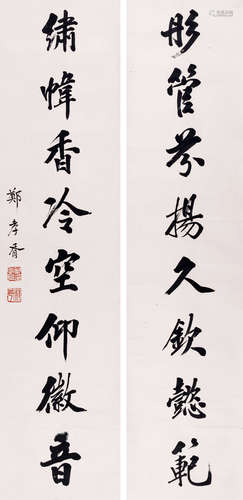 彤管芬揚久欽懿範
繡幃香冷空仰徽音
鄭孝胥